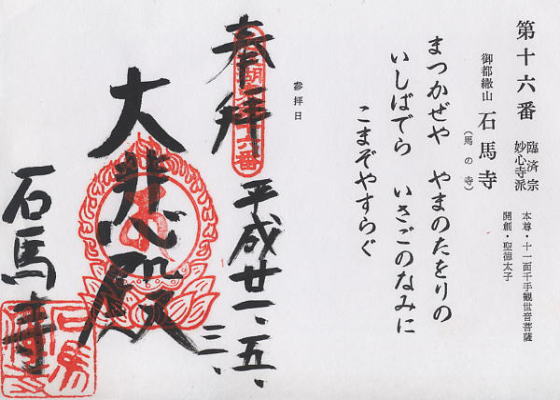 第十六番
臨済宗
妙心寺派
本尊・十一面千手観世音菩薩
開創・聖徳太子
御都繖山
石馬寺
(馬の寺)
まつかぜや やまのたをりの
いしばでら いさごのなみに
こまぞやすらぐ
参拝日
奉拝
平成廿一、五、三、
大悲殿
石馬寺
石馬